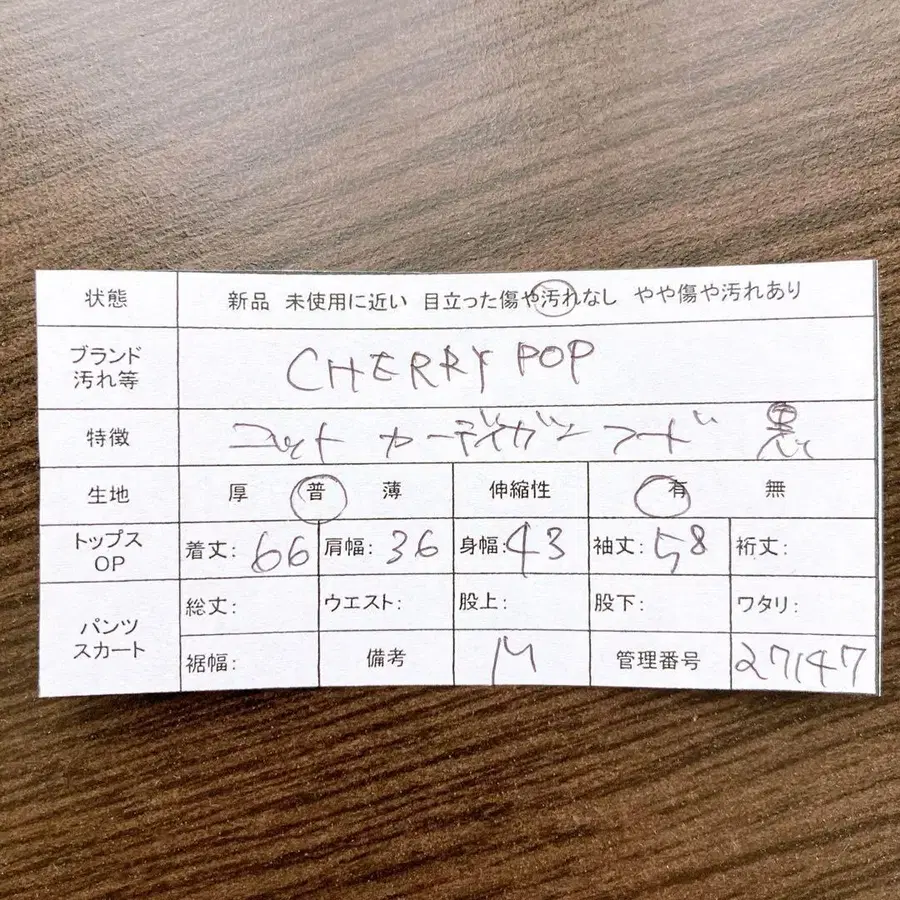 状態 新品 未使用に近い 目立った傷や汚れなし やや傷や汚れあり
ブランド
汚れ等 CHERRY POP
特徴 ニット カーディガン フード 黒
生地 厚 普 薄 伸縮性 有 無
トップス
OP 着丈: 66 肩幅: 36 身幅: 43 袖丈: 58 裄丈:
パンツ
スカート 総丈: ウエスト: 股上: 股下: ワタリ:
裾幅: 備考 M 管理番号 27147